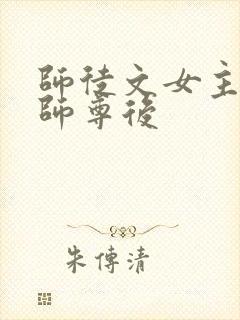 師徒文女主
師尊後
朱傅清